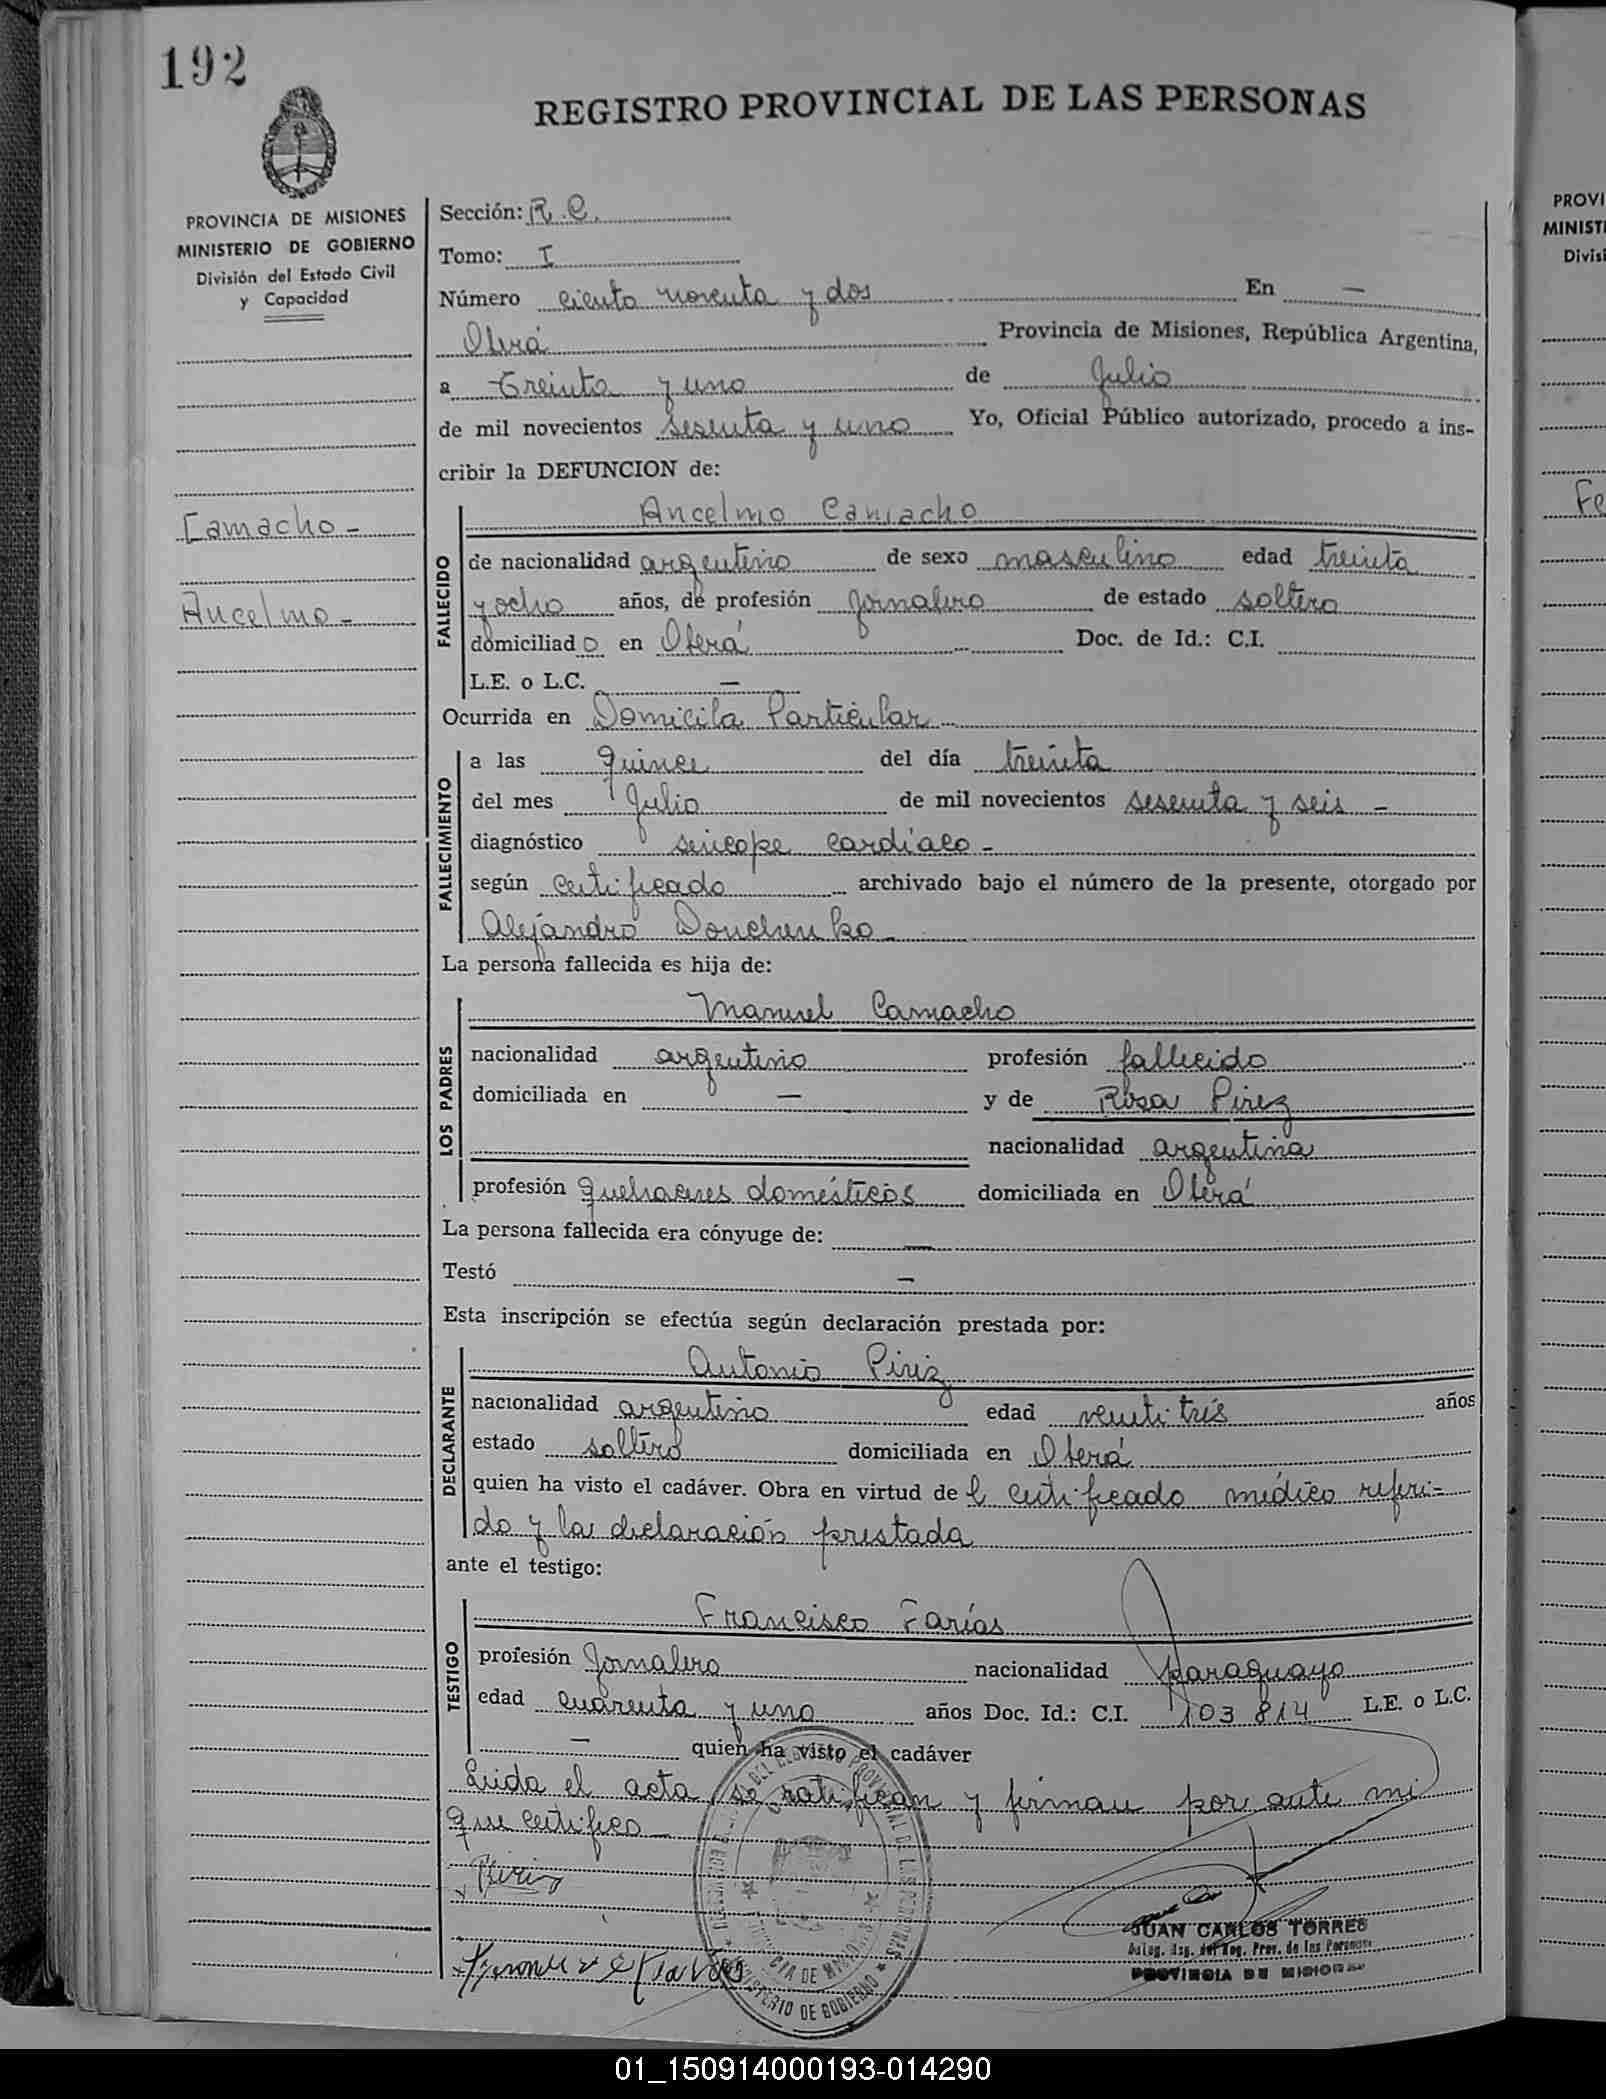 192
REGISTRO PROVINCIAL DE LAS PERSONAS
PROVINCIA DE MISIONES
MINISTERIO DE GOBIERNO
División del Estado Civil
y Capacidad
Camacho -
Ancelmo -
Sección: R.C.
Tomo: I
Número ciento noventa y dos En —
Oberá Provincia de Misiones, República Argentina,
a Treinta y uno de Julio
de mil novecientos sesenta y uno Yo, Oficial Público autorizado, procedo a ins-
cribir la DEFUNCION de:
FALLECIDO
Ancelmo Camacho
de nacionalidad argentino de sexo masculino edad treinta
y ocho años, de profesión Jornalero de estado soltero
domiciliado en Oberá Doc. de Id.: C.I.
L.E. o L.C. —
Ocurrida en Domicila Particular
FALLECIMIENTO
a las quince del día treinta
del mes Julio de mil novecientos sesenta y seis -
diagnóstico sincope cardíaco -
según certificado archivado bajo el número de la presente, otorgado por
Alejandro Donchenko
La persona fallecida es hija de:
LOS PADRES
Manuel Camacho
nacionalidad argentino profesión fallecido
domiciliada en — y de Rosa Pirez
nacionalidad argentina
profesión quehaceres domésticos domiciliada en Oberá
La persona fallecida era cónyuge de: —
Testó —
Esta inscripción se efectúa según declaración prestada por:
DECLARANTE
Antonio Piriz
nacionalidad argentino edad veinti trés años
estado soltero domiciliada en Oberá
quien ha visto el cadáver. Obra en virtud del certificado médico referi-
do y la declaración prestada
ante el testigo:
TESTIGO
Francisco Farías
profesión Jornalero nacionalidad paraguayo
edad cuarenta y uno años Doc. Id.: C.I. 103 814 L.E. o L.C.
— quien ha visto el cadáver
Leida el acta, se ratifican y firman por ante mi
que certifico —
Piriz
JUAN CARLOS TORRES
PROVINCIA DE MISIONES
MINISTERIO DE GOBIERNO
PROVI
MINISTE
Divisi
Fe
01_150914000193-014290